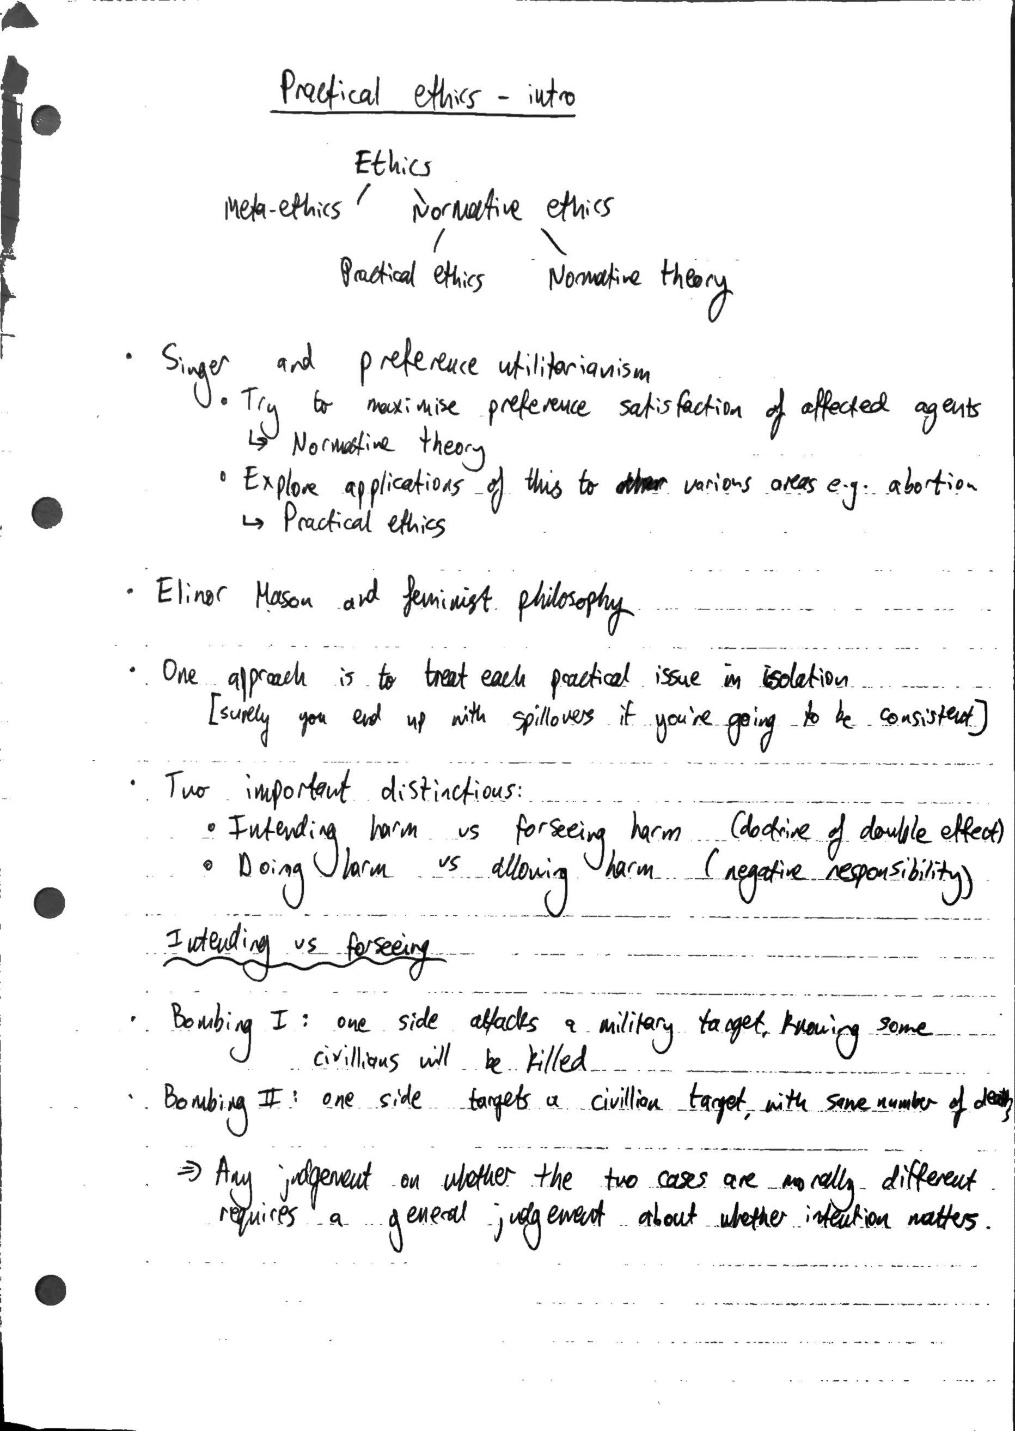 Practical ethics - intro
Ethics
Meta-ethics Normative ethics
Practical ethics Normative theory
• Singer and preference utilitarianism
• Try to maximise preference satisfaction of affected agents
↳ Normative theory
• Explore applications of this to various areas e.g. abortion
↳ Practical ethics
• Elinor Mason and feminist philosophy
• One approach is to treat each practical issue in isolation
[surely you end up with spillovers if you're going to be consistent]
• Two important distinctions:
• Intending harm vs forseeing harm (doctrine of double effect)
• Doing harm vs allowing harm (negative responsibility)
Intending vs forseeing
• Bombing I: one side attacks a military target, knowing some
civillians will be killed
• Bombing II: one side targets a civillian target, with same number of deaths
⇒ Any judgement on whether the two cases are morally different
requires a general judgement about whether intention matters.